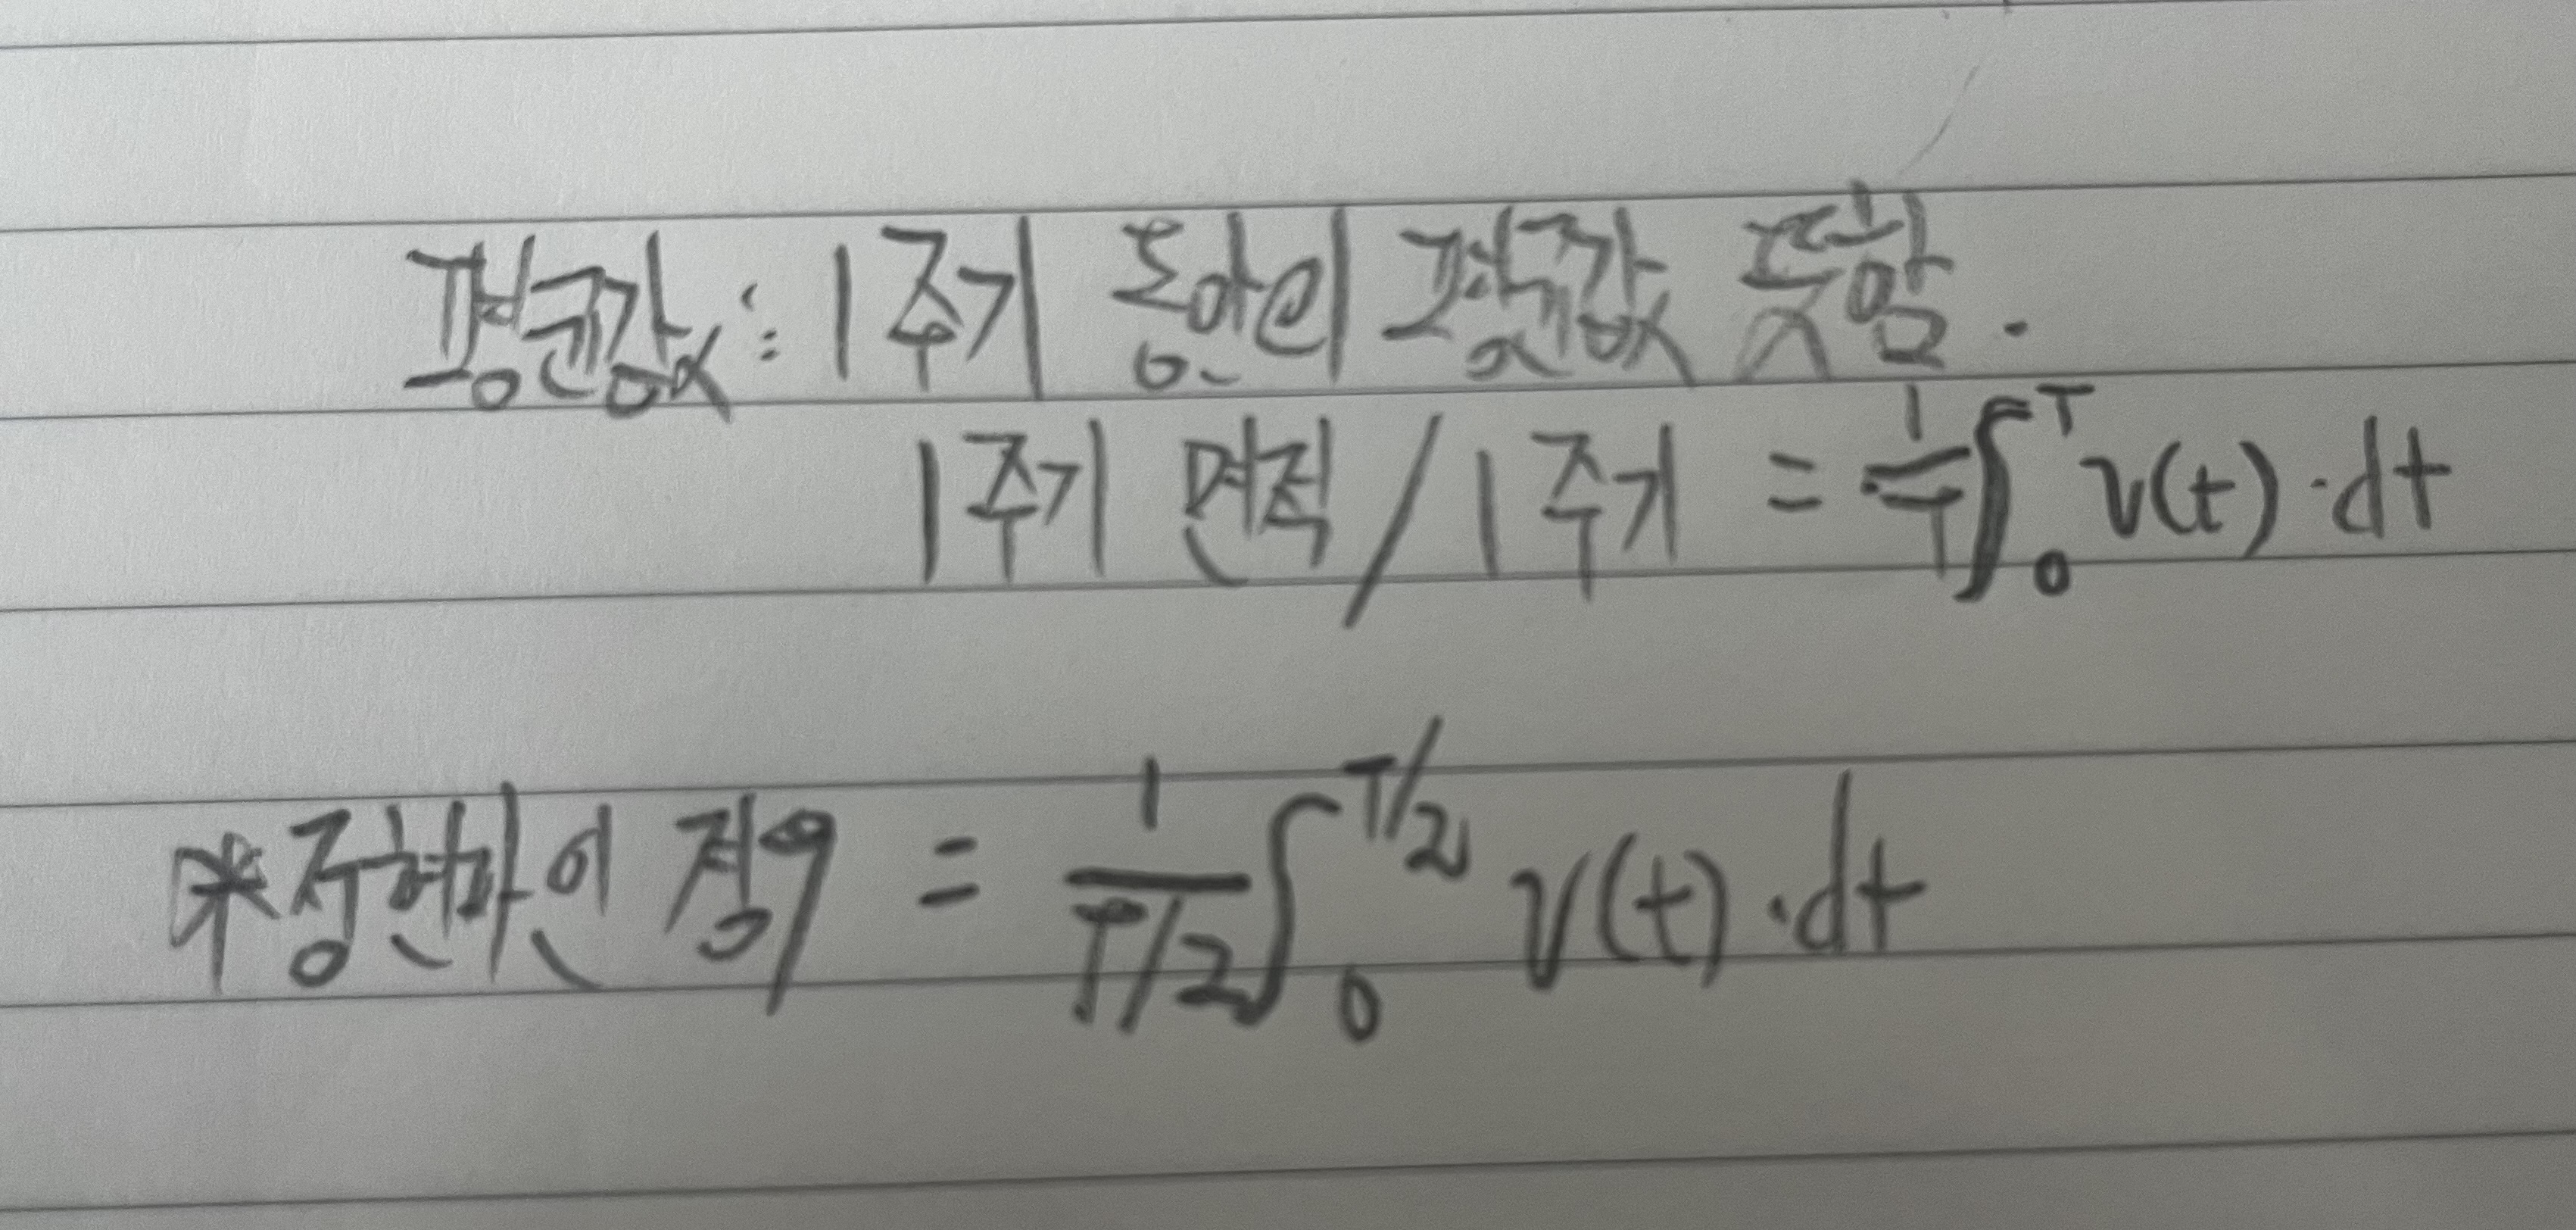 평균값 : 1주기 동안의 평균값 뜻함.
1주기 면적 / 1주기 = 1/T ∫₀ᵀ v(t)·dt
*정현파인 경우 = 1/(T/2) ∫₀^(T/2) v(t)·dt